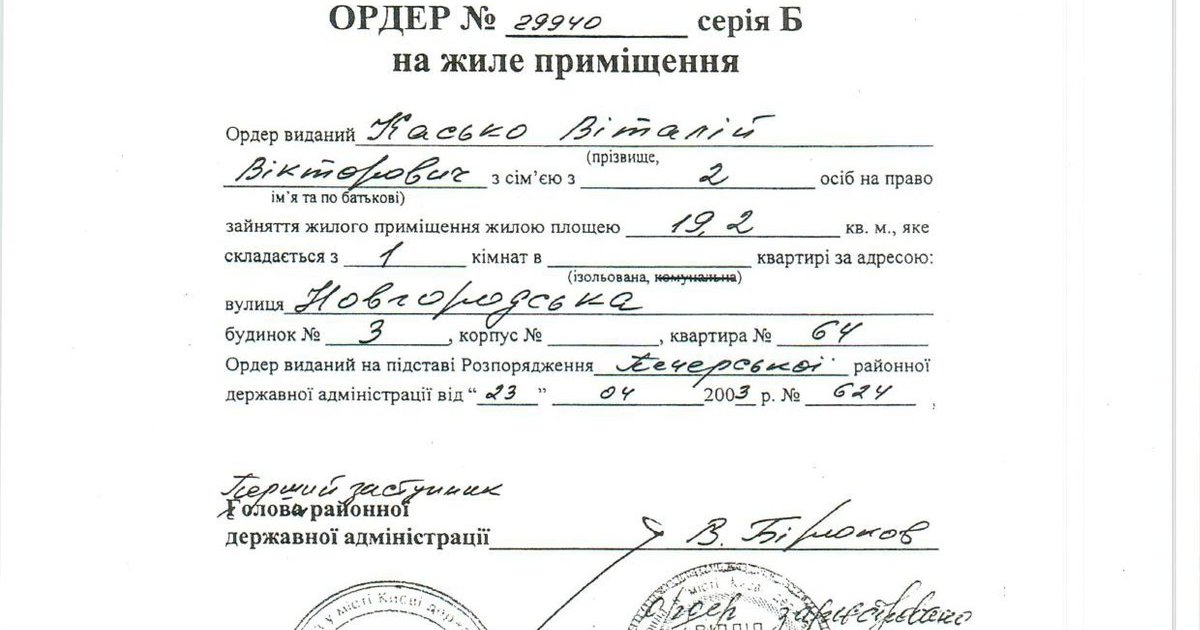 ОРДЕР № 29940 серія Б
на жиле приміщення
Ордер виданий Касько Віталій
(прізвище,
Вікторович з сім’єю з 2 осіб на право
ім’я та по батькові)
зайняття жилого приміщення жилою площею 19,2 кв. м., яке
складається з 1 кімнат в квартирі за адресою:
(ізольована, комунальна)
вулиця Новгородська
будинок № 3, корпус № , квартира № 64
Ордер виданий на підставі Розпорядження Печерської районної
державної адміністрації від “23” 04 2003 р. № 624
Перший заступник
Голова районної
державної адміністрації В. Бірюков
у місті Києві
місті Києва
Ордер зареєстровано
ВІДДІЛ